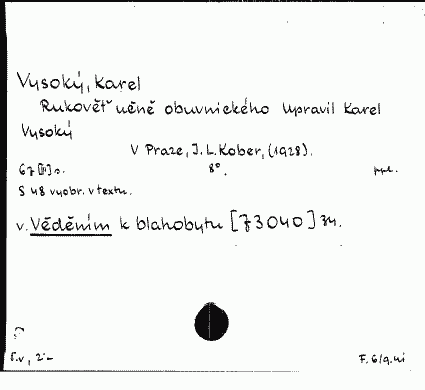 Vysoký, Karel
Rukověť učně obuvnického upravil Karel
Vysoký
V Praze, J. L. Kober, (1928).
67 [II] s. 8°. ppl.
S 48 vyobr. v textu.
v. Věděním k blahobytu [73040] 34.